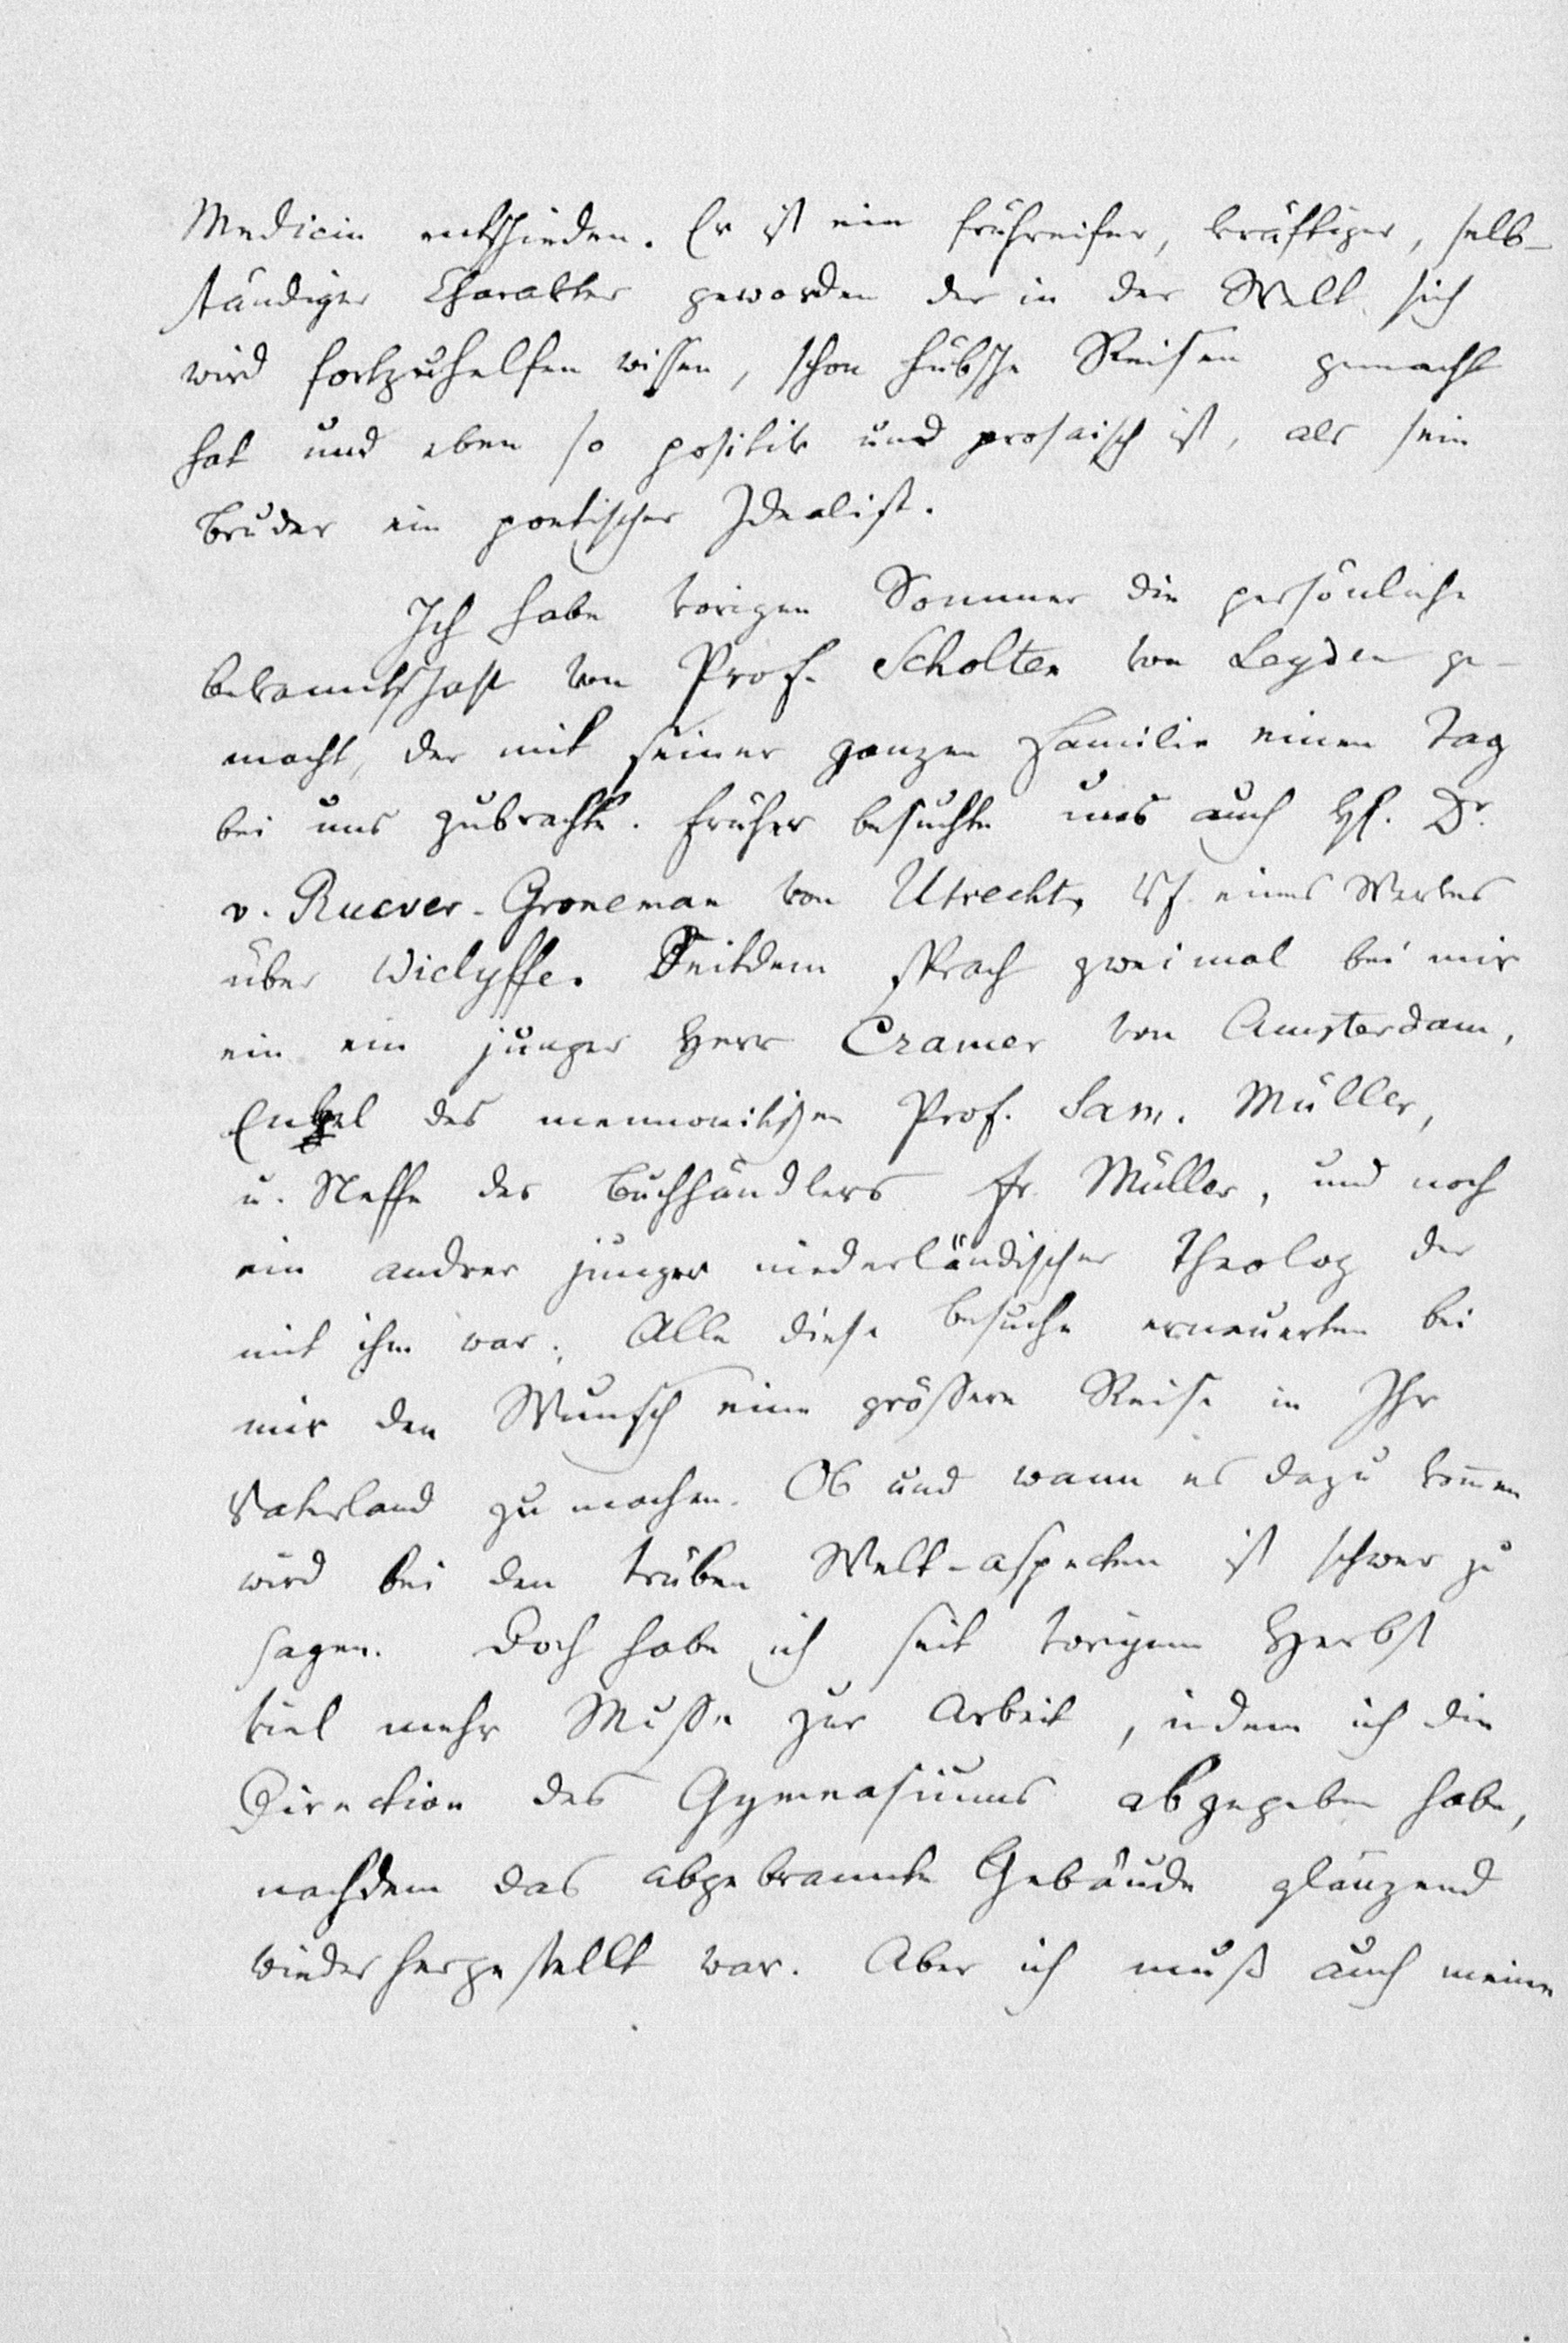 Medicin entschieden. Er ist ein frühreifer, kräftiger, selb-
ständiger Charakter geworden der in der Welt sich
wird fortzuhelfen wissen, schon hübsche Reisen gemacht
hat und eben so positiv und prosaisch ist, als sein
Bruder ein poetischer Idealist.
Ich habe vorigen Sommer die persönliche
Bekanntschaft von Prof. Scholten von Leyden ge-
macht, der mit seiner ganzen Familie einen Tag
bei uns zubrachte. Früher besuchte uns auch H. Dr.
v. Ruever-Groneman von Utrecht, Vf. eines Werkes
über Wiclyffe. Seitdem sprach zweimal bei mir
ein ein junger Herr Cramer von Amsterdam,
Enkel des mennonitischen Prof. Sam. Müller,
u. Neffe des Buchhändlers Fr. Müller, und noch
ein andrer junger niederländischer Theolog der
mit ihm war. Alle diese Besuche erneuerten bei
mir den Wunsch eine größere Reise in Ihr
Vaterland zu machen. Ob und wann es dazu kom̅en
wird bei den trüben Welt-aspecten ist schwer zu
sagen. Doch habe ich seit vorigem Herbst
viel mehr Muße zur Arbeit, indem ich die
Direction des Gymnasiums abgegeben habe,
nachdem das abgebrannte Gebäude glänzend
wiederhergestellt war. Aber ich muß auch meine